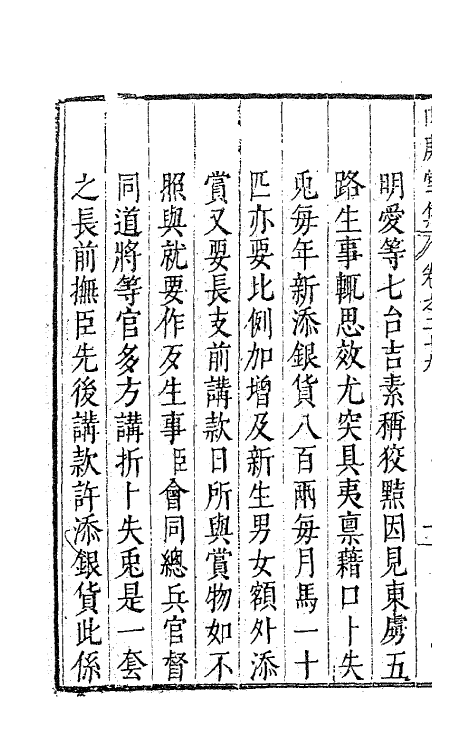 明愛等七台吉素稱狡黠因見東虜五
路生事輒思效尤突具夷稟藉口卜失
兎每年新添銀貨八百兩每月馬一十
匹亦要比例加增及新生男女額外添
賞又要長支前講款日所與賞物如不
照與就要作歹生事臣會同總兵官督
同道將等官多方講折卜失兎是一套
之長前撫臣先後講款許添銀貨此係